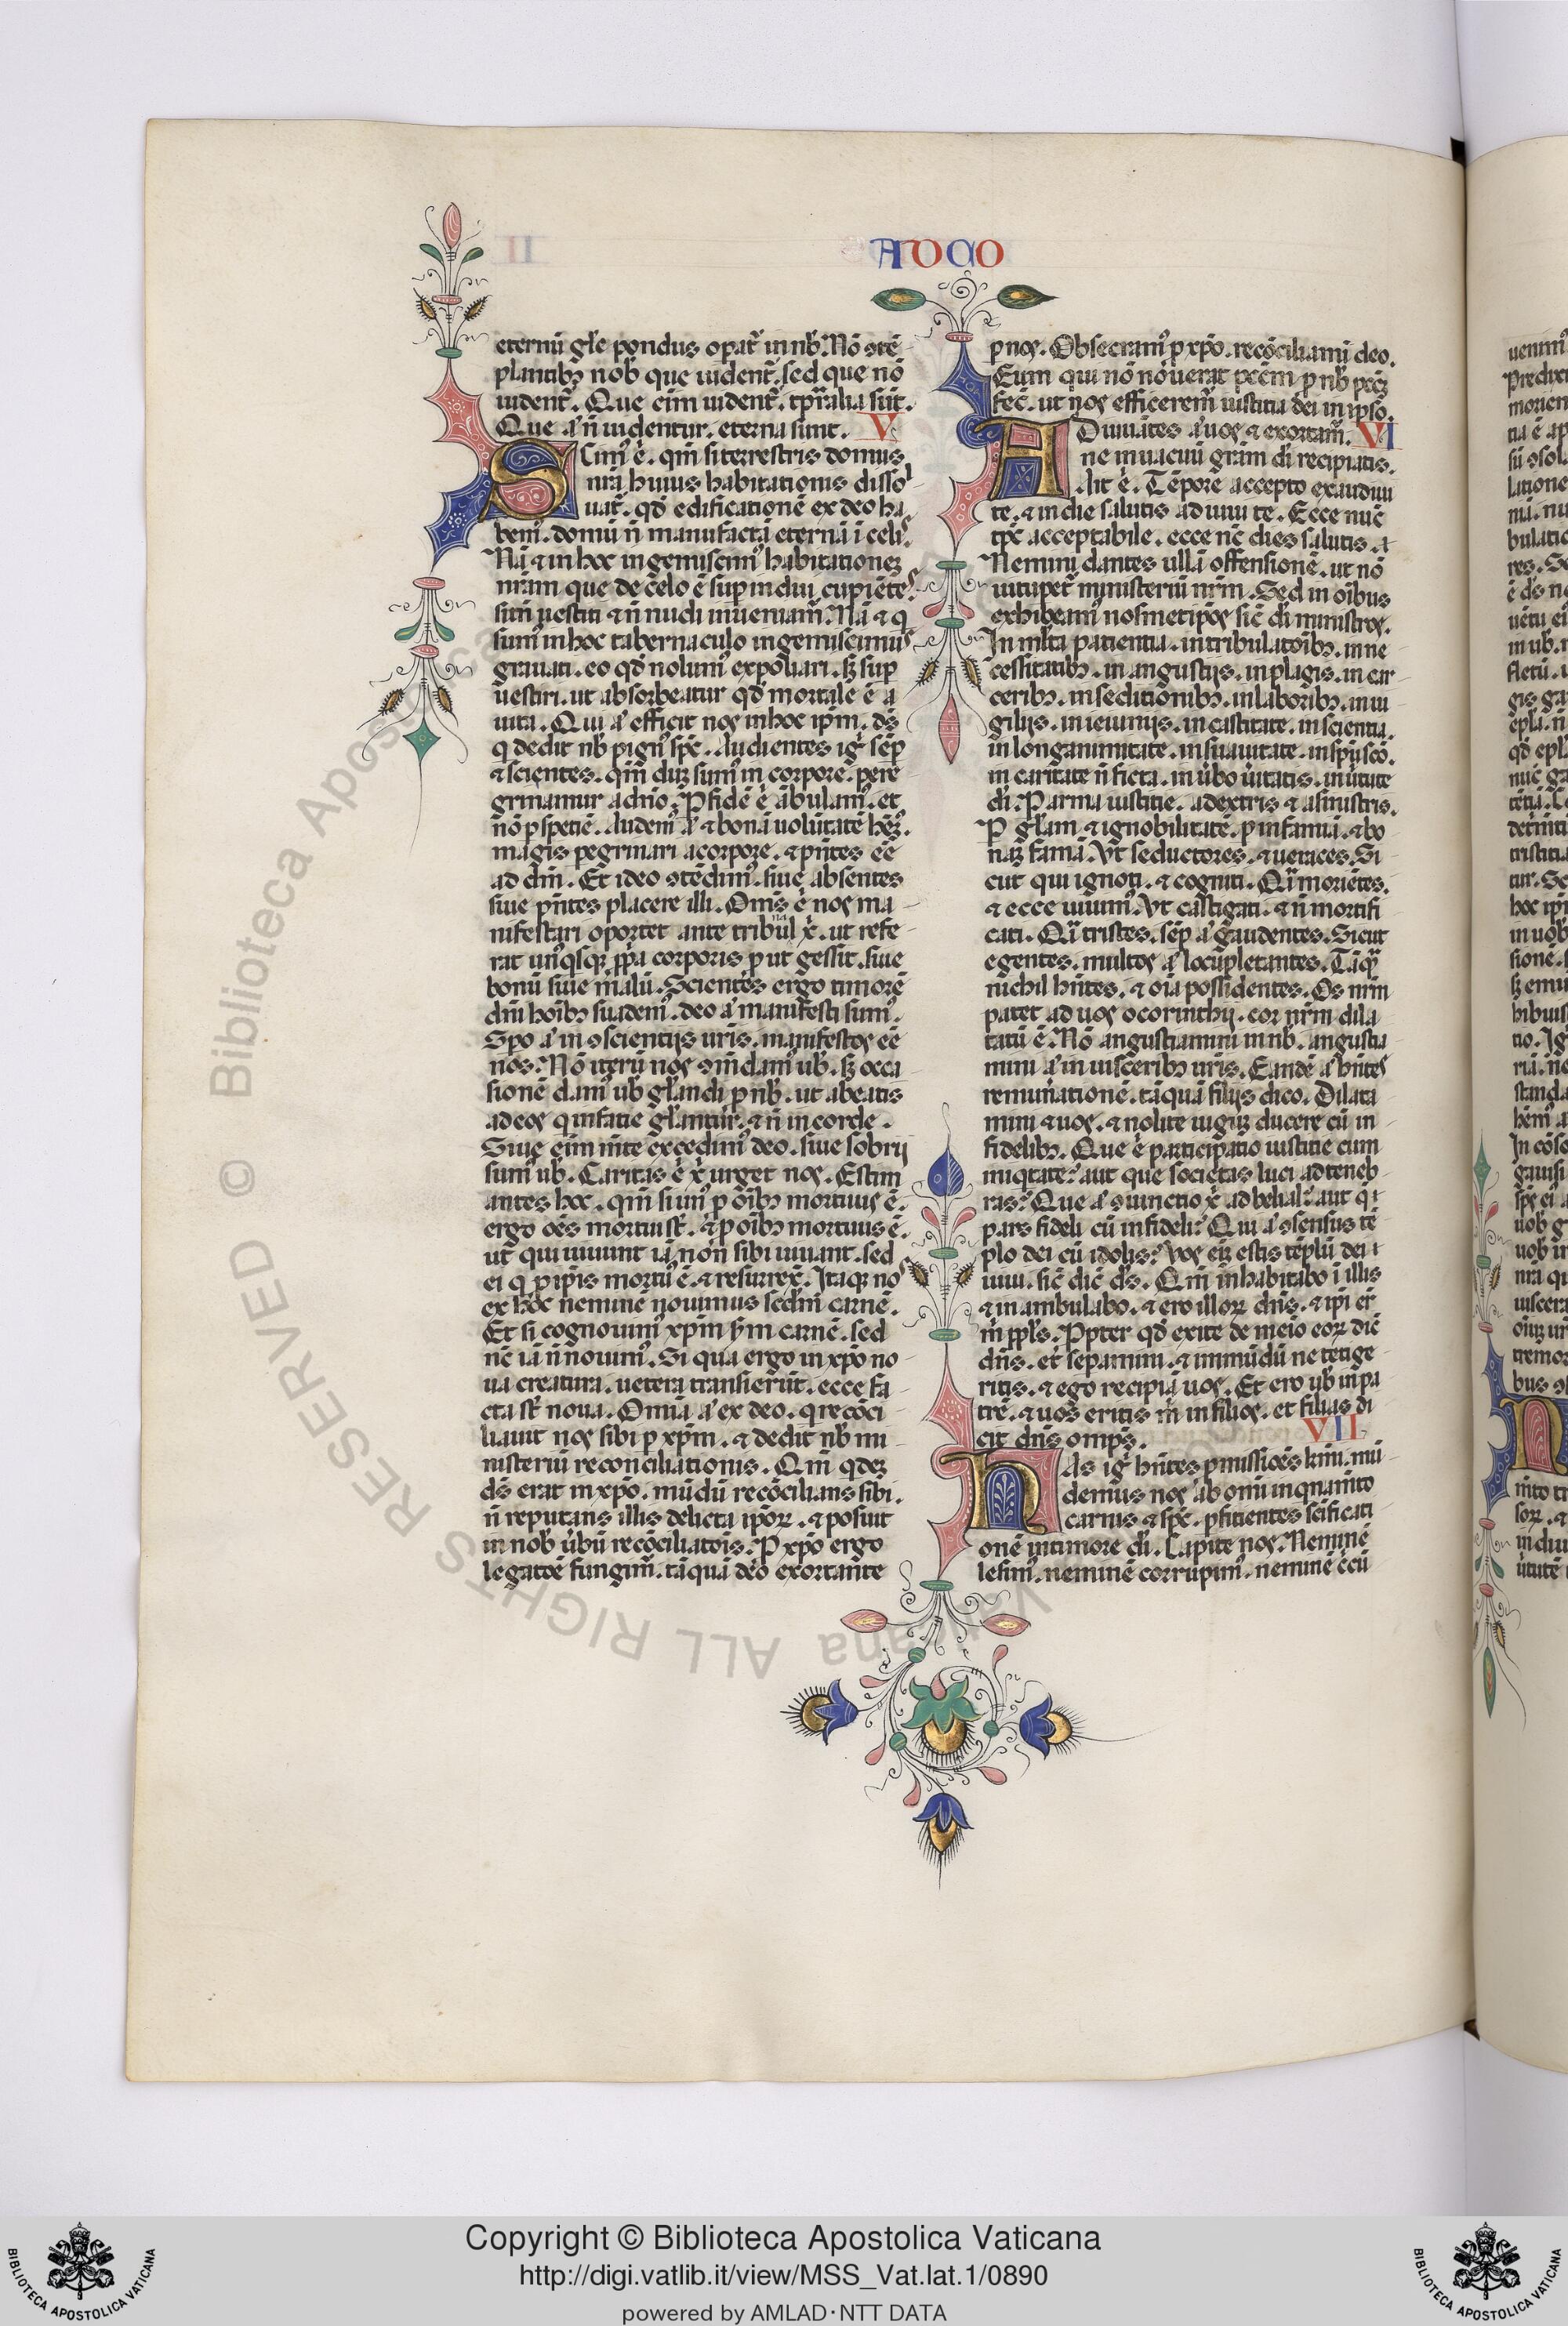 AD CO
eternū gl'e pondus opat' in nb'. Nō ɔtē
plantibꝫ nob' que uident'. sed que nō
uident'. Que eim uident'. tp̄ralia sūt.
Que a' n̄ uidentur. eterna sunt. V
Scim' ē. qm̄ si terrestris domus
nr̄a huius habitationis disso
uat'. qd' edificationē ex deo ha
bem'. domū n̄ manufactā eternā ī celis.
Nā ⁊ in hoc ingemiscim' habitationeꝫ
nr̄am que de celo ē sup indui cupiētes.
sin̄ uestiti ⁊ n̄ nudi inueniam'. Nā ⁊ q
sum' in hoc tabernaculo ingemiscimus
grauati. eo qd' nolum' expoliari. sꝫ sup
uestiri. ut absorbeatur qd' mortale ē a
uita. Qui a' efficit nos in hoc ip̄m. ds̄
q dedit nb' pign' sp̄c. Audientes ig' sēp
⁊ scientes. qm̄ duꝫ sum' in corpore. pere
grinamur a dn̄o. P fidē ē ābulam'. et
nō p spetiē. Audem' a' ⁊ bonā uolūtatē hēꝫ'.
magis pegrinari a corpore. ⁊ pn̄tes eē
ad dm̄. Et ideo ɔtēdim'. siue absentes
siue pn̄tes placere illi. Omīs ē nos ma
nifestari oportet ante tribul x̄. ut refe
rat un'qsqꝫ ppa corporis put gessit. siue
bonū siue malū. Scientes ergo timorē
dn̄i hoibꝫ suadem'. deo a' manifesti sum'.
Spo a' in ɔscientijs ur̄is. manifestos eē
nos. Nō iterū nos ɔm̄dam' ub'. sꝫ occa
sionē dam' ub' gl'andi p nb'. ut abeatis
ad eos q in fatie gl'antur. ⁊ n̄ in corde.
Siue eim m̄te excedim' deo. siue sobrij
sum' ub'. Caritas ē x̄ urget nos. Estim
antes hoc. qm̄ si un' p oībꝫ mortuus ē.
ergo oēs mortui st'. ⁊ p oībꝫ mortuus ē.
ut qui uiuunt iā non sibi uiuant. sed
ei q p ip̄is mortu' ē. ⁊ resurrex'. Itaqꝫ nos
ex hoc neminē nouimus sed'm carnē.
Et si cognouim' xp̄m s'm carnē. sed
nc̄ iā n̄ nouim'. Si qua ergo in xp̄o no
ua creatura. uetera transierūt. ecce fa
cta st' noua. Omīa a' ex deo. q recōci
liauit nos sibi p xp̄m. ⁊ dedit nb' mi
nisteriū reconciliationis. Qm̄ qdeꝫ
ds̄ erat in xp̄o. mūdū recōcilians sibi.
n̄ reputans illis delicta ip̄oꝝ. ⁊ posuit
in nob' ūbū recōciliatōis. P xp̄o ergo
legatōe fungim'. tāquā deo exortante
p nos. Obsecram' p xp̄o. recōciliamī deo.
Eum qui nō nouerat pcc̄m. p nb' pcc̄ꝫ
fec'. ut nos efficerem' iustitia dei in ipso.
VI
Adiuuātes a' uos ⁊ exortam'.
ne in uacuū gr̄am di' recipiatis.
Ait ē. Tēpore accepto exaudiui
te. ⁊ in die salutis adiuui te. Ecce nūc
tp̄c acceptabile. ecce nc̄ dies salutis. a
Nemini dantes ullā offensionē. ut nō
uitupet' ministeriū nr̄m. Sed in oībus
exhibeam' nosmetip̄os sic' di' ministros.
In mlta patientia. in tribulatōibꝫ. in ne
cessitatibꝫ. in angustijs. in plagis. in car
ceribꝫ. in seditionibꝫ. in laboribꝫ. in ui
gilijs. in ieiunijs. in castitate. in scientia.
in longanimitate. in suauitate. in sp̄u scō.
in caritate n̄ ficta. in ūbo ūitatis. in ūtute
di'. P arma iustitie. a dextris ⁊ a sinistris.
P gl'am ⁊ ignobilitatē. p infamiā. ⁊ bo
naꝫ famā. Vt seductores. ⁊ ueraces. Si
cut qui ignoti. ⁊ cogniti. Qi' moriētes.
⁊ ecce uiuim'. Vt castigati. ⁊ n̄ mortifi
cati. Qi' tristes. sēp a' gaudentes. Sicut
egentes. multos a' locupletantes. Tāqꝫ
nichil hn̄tes. ⁊ oīa possidentes. Os nr̄m
patet ad uos o corinthij. cor nr̄m dila
tatū ē. Nō angustiamini in nb'. angustia
mini a' in uisceribꝫ ur̄is. Eandē a' hn̄tes
remun̄ationē. tāquā filijs dico. Dilata
mini ⁊ uos. ⁊ nolite iugūꝫ ducere cū in
fidelibꝫ. Que ē participatio iustitie cum
iniqtate? aut que societas luci ad teneb
ras? Que a' ɔuinctio x̄ ad belial? aut q i
pars fideli cū infideli? Qui a' ɔsensus tē
plo dei cū idolis? Vos eiꝫ estis tēplū dei
uiui. sic' dic' ds̄. Qm̄ inhabitabo ī illis
⁊ in ambulabo. ⁊ ero illoꝝ dn̄s. ⁊ ip̄i er̄
m̄ ppl's. Ppter qd' exite de meio eoꝝ dic'
dn̄s. et separimini. ⁊ immūdū ne tetige
ritis. ⁊ ego recipiā uos. Et ero ub' in pa
trē. ⁊ uos eritis m̄ in filios. et filias di
cit dn̄s omp̄s. VII
Has ig' hn̄tes pmissiōes k̄mi. mū
demus nos ab omī inqnam̄to
carnis ⁊ sp̄c. pficientes sc̄ificati
onē in timore di'. Capite nos. Neminē
lesim'. neminē corrupim'. neminē c̄cū
Copyright © Biblioteca Apostolica Vaticana
http://digi.vatlib.it/view/MSS_Vat.lat.1/0890
powered by AMLAD·NTT DATA
BIBLIOTECA APOSTOLICA VATICANA
BIBLIOTECA APOSTOLICA VATICANA
© Biblioteca Apostolica Vaticana ALL RIGHTS RESERVED